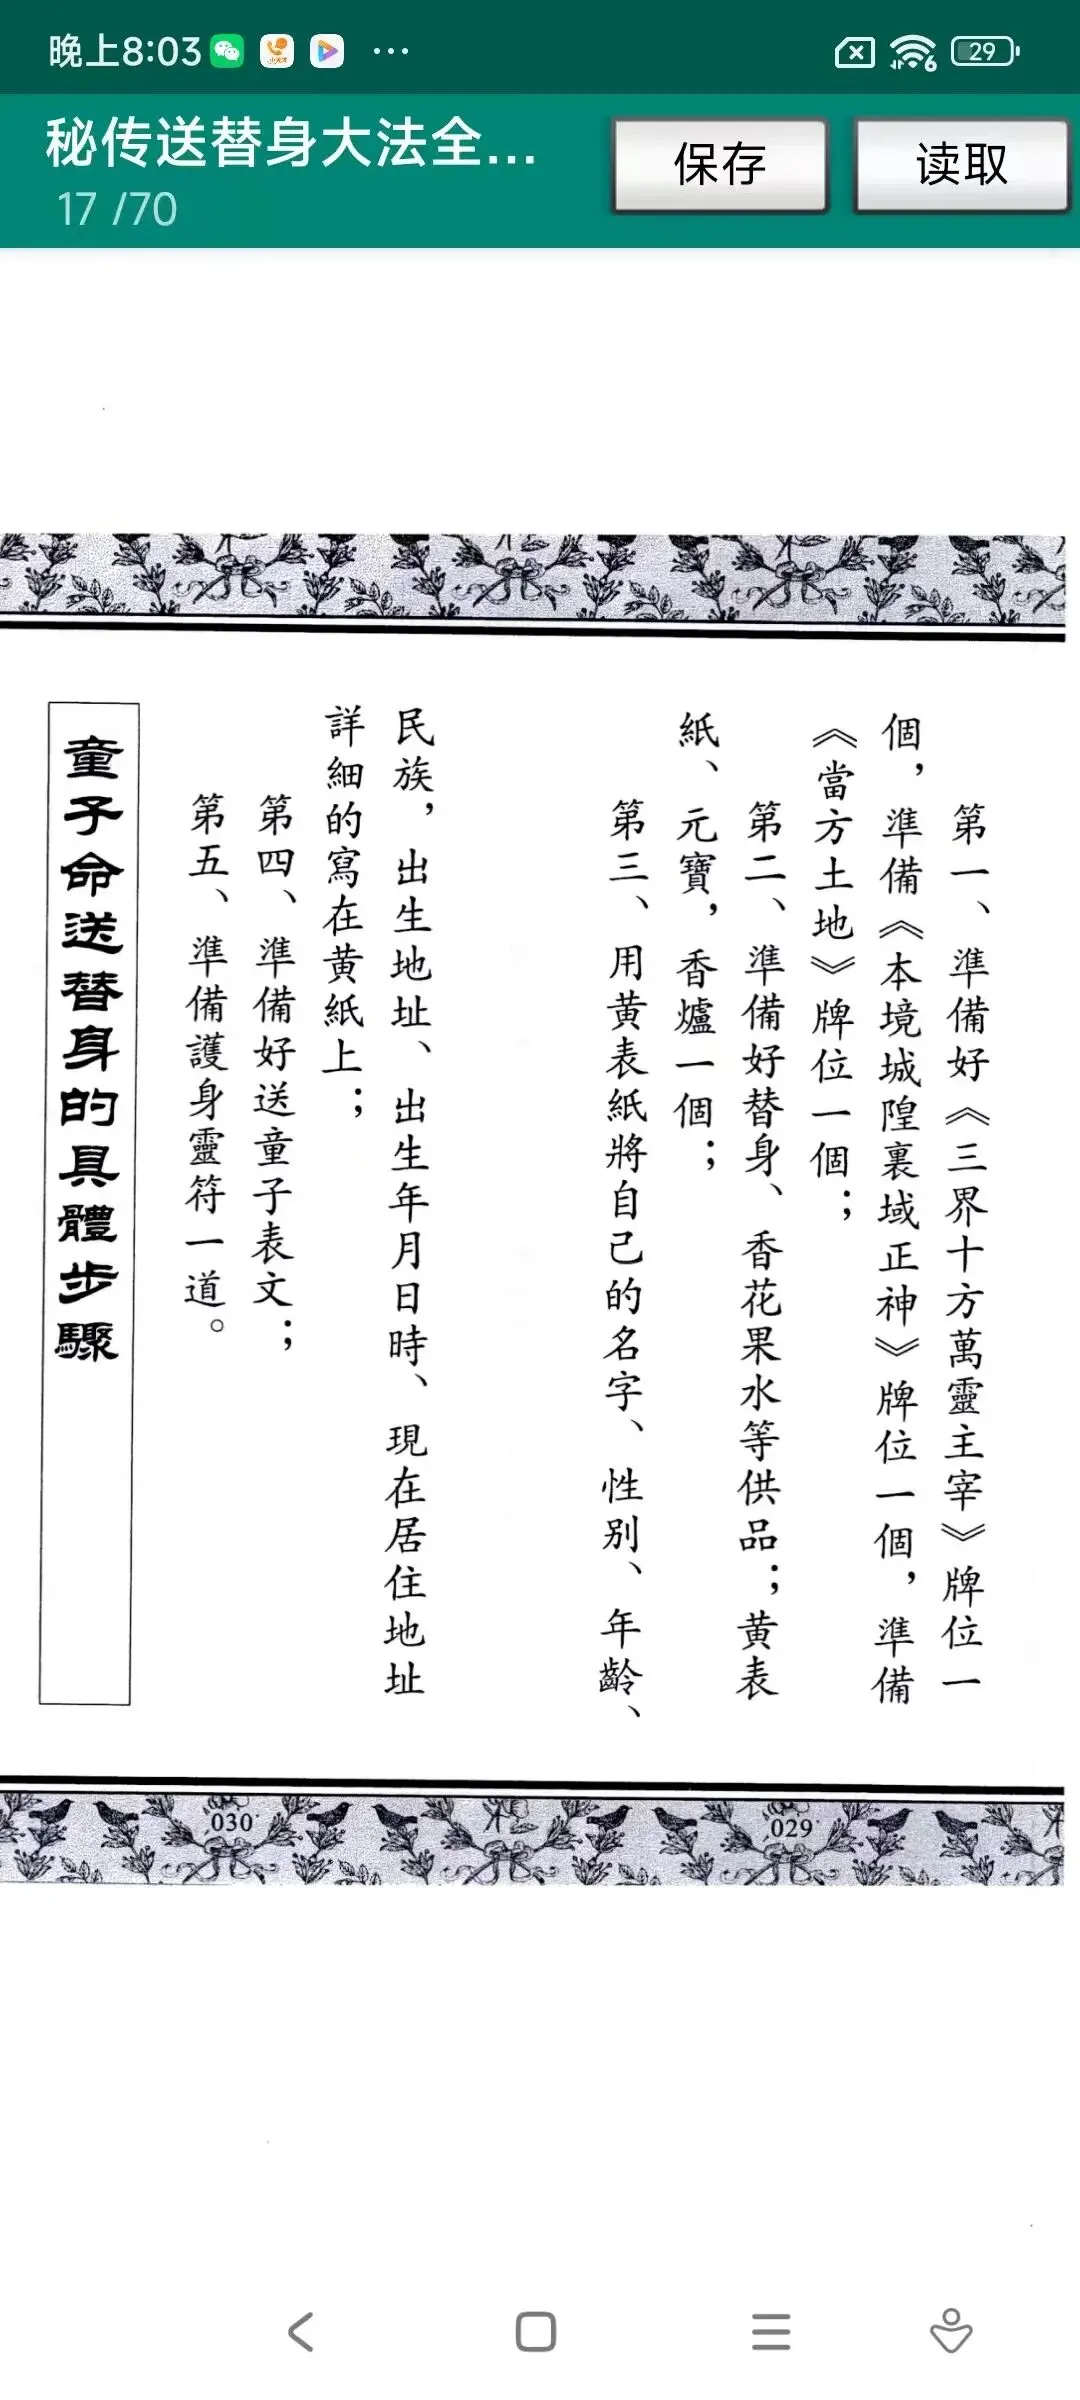 晚上8:03
29
秘传送替身大法全...
17 /70
保存
读取
第一、準備好《三界十方萬靈主宰》牌位一
個，準備《本境城隍裏域正神》牌位一個，準備
《當方土地》牌位一個；
第二、準備好替身、香花果水等供品；黄表
紙、元寶，香爐一個；
第三、用黄表紙將自己的名字、性别、年齡、
民族，出生地址、出生年月日時、現在居住地址
詳細的寫在黄紙上；
第四、準備好送童子表文；
第五、準備護身靈符一道。
童子命送替身的具體步驟
030
029